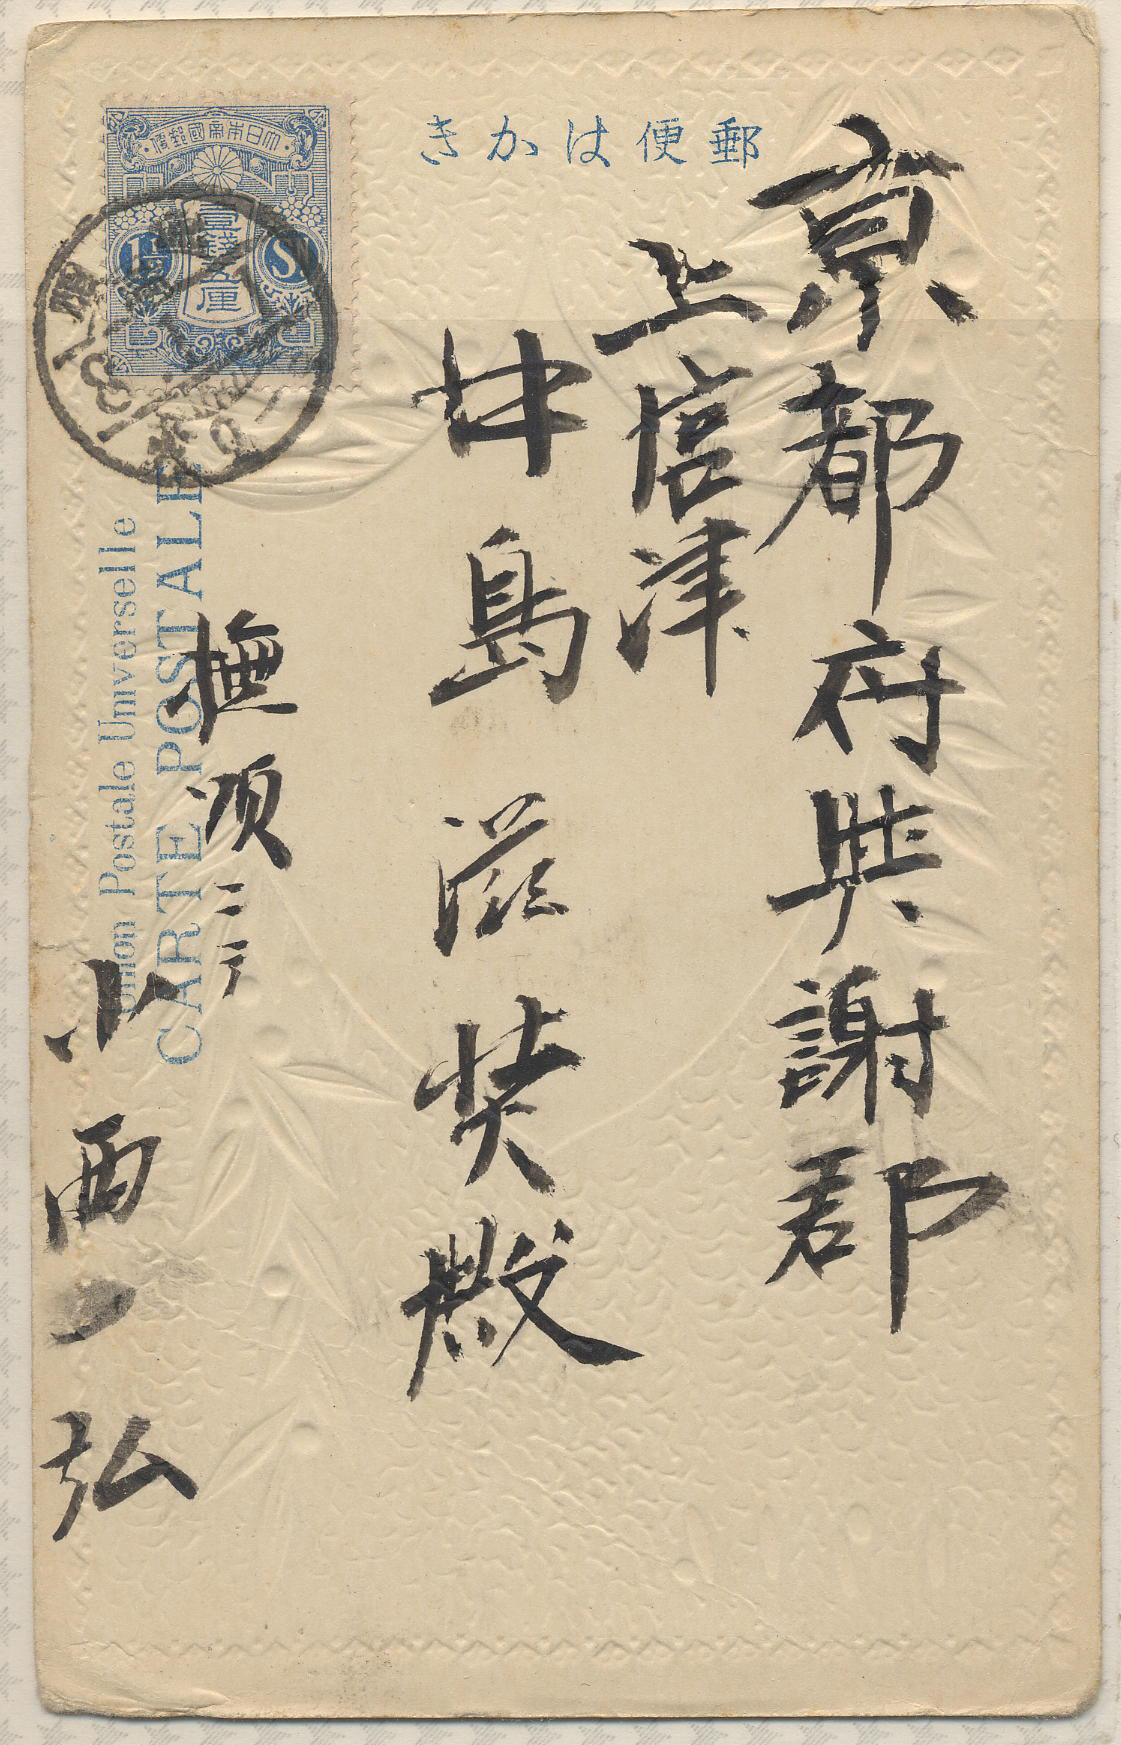 郵便はかき
大日本帝國郵便
壹錢五厘
1½
Sn
京都府與謝郡
上宮津
中島滋美殿
撫順ニテ
小西弘
CARTE POSTALE
Union Postale Universelle